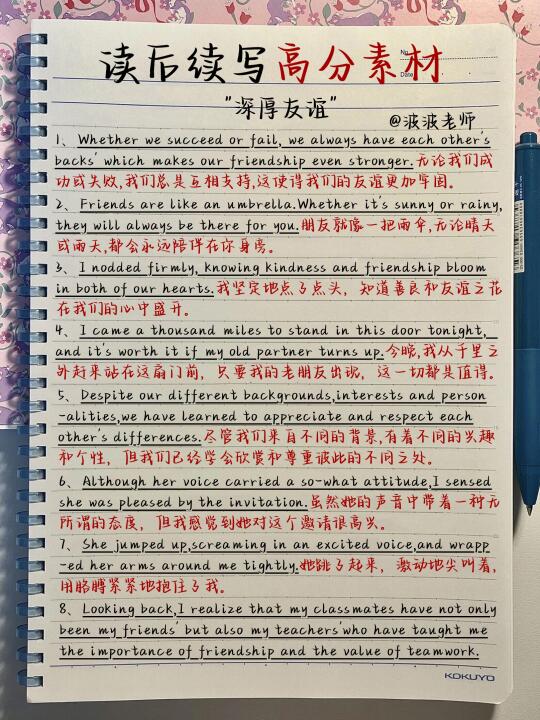 读后续写高分素材
No.
Date
"深厚友谊"
@波波老师
1、Whether we succeed or fail, we always have each other's
backs' which makes our friendship even stronger.无论我们成
功或失败,我们总是互相支持,这使得我们的友谊更加牢固。
2、Friends are like an umbrella.Whether it's sunny or rainy,
they will always be there for you.朋友就像一把雨伞,无论晴天
或雨天,都会永远陪伴在你身旁。
3、I nodded firmly, knowing kindness and friendship bloom
in both of our hearts.我坚定地点了点头，知道善良和友谊之花
在我们的心中盛开。
4、I came a thousand miles to stand in this door tonight,
and it's worth it if my old partner turns up.今晚,我从千里之
外赶来站在这扇门前，只要我的老朋友出现，这一切都是值得。
5、Despite our different backgrounds,interests and person
-alities,we have learned to appreciate and respect each
other's differences.尽管我们来自不同的背景,有着不同的兴趣
和个性，但我们已经学会欣赏和尊重彼此的不同之处。
6、Although her voice carried a so-what attitude,I sensed
she was pleased by the invitation.虽然她的声音中带着一种无
所谓的态度，但我感觉到她对这个邀请很高兴。
7、She jumped up,screaming in an excited voice,and wrapp
-ed her arms around me tightly.她跳了起来，激动地尖叫着,
用胳膊紧紧地抱住了我。
8、Looking back,I realize that my classmates have not only
been my friends' but also my teachers'who have taught me
the importance of friendship and the value of teamwork.
KOKUYO